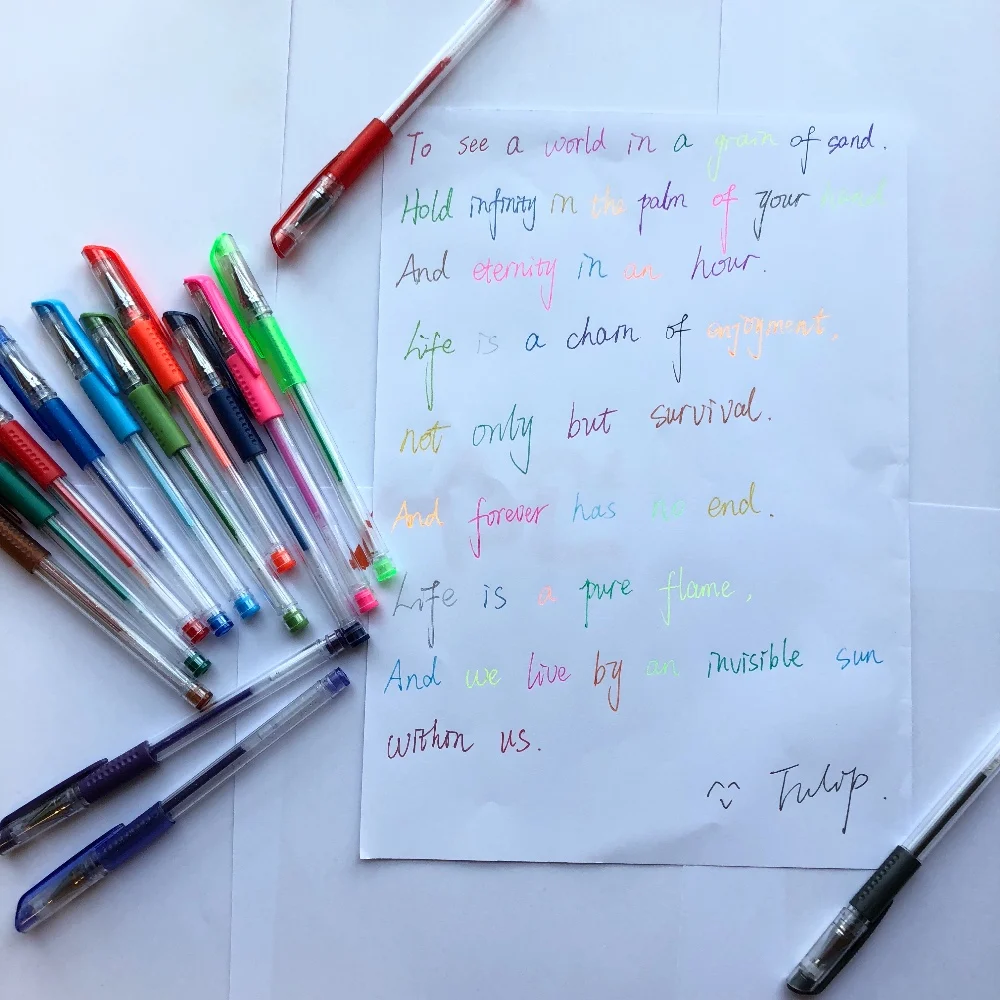 To see a world in a grain of sand.
Hold infinity in the palm of your hand
And eternity in an hour.
Life is a charn of enjoyment,
not only but survival.
And forever has no end.
Life is a pure flame,
And we live by an invisible sun
within us.
Tulip.